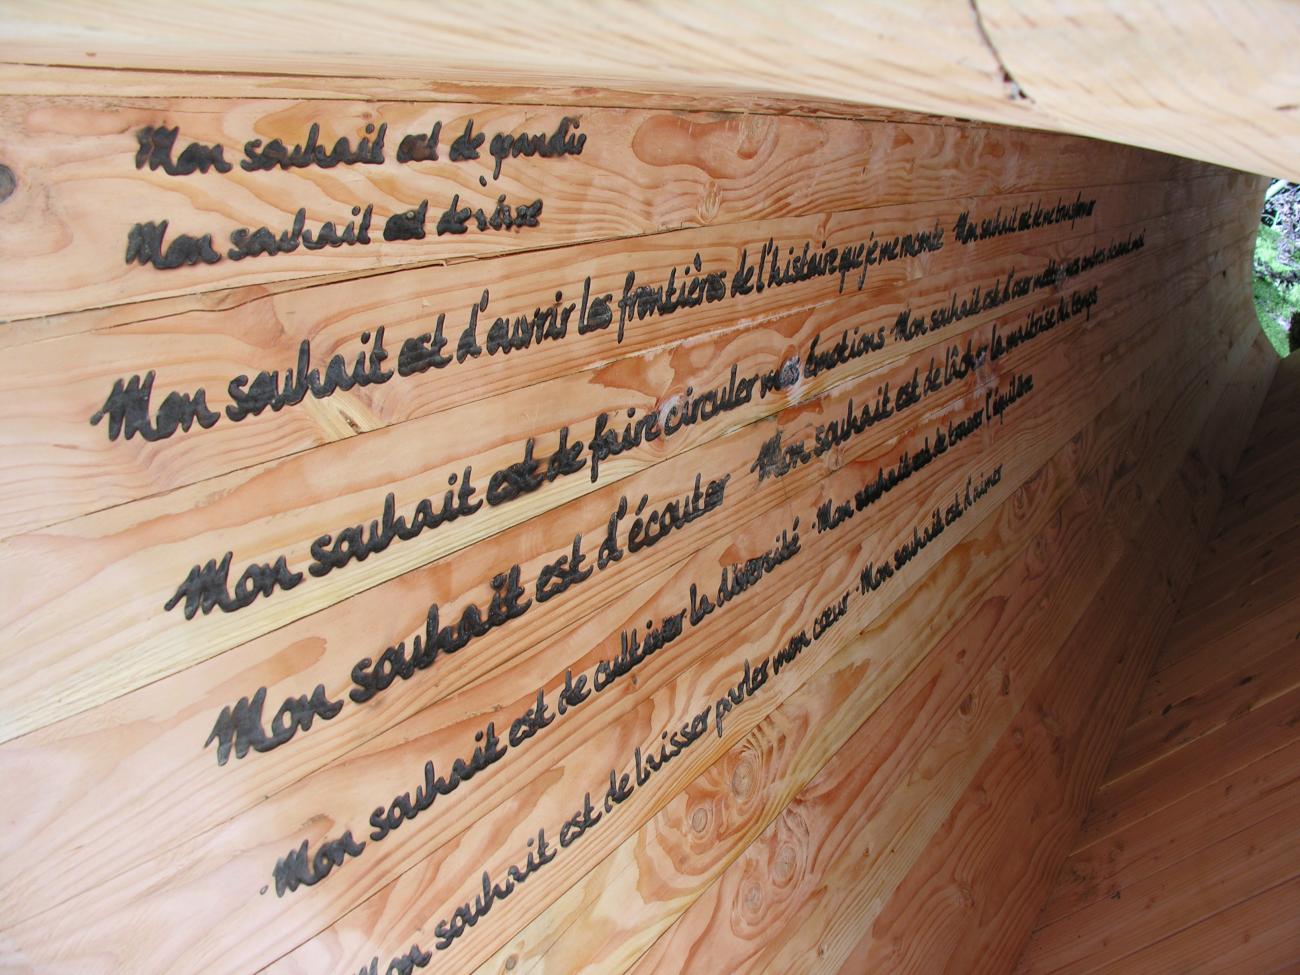 Mon souhait est de grandir
Mon souhait est de rêver
Mon souhait est d'ouvrir les frontières de l'histoire que je me monte Mon souhait est de me transformer
Mon souhait est de faire circuler mes émotions Mon souhait est d'oser mettre mes ombres
Mon souhait est d'écouter Mon souhait est de lâcher la maîtrise du temps
Mon souhait est de cultiver la diversité Mon souhait est de trouver l'équilibre
Mon souhait est de laisser parler mon cœur Mon souhait est d'aimer